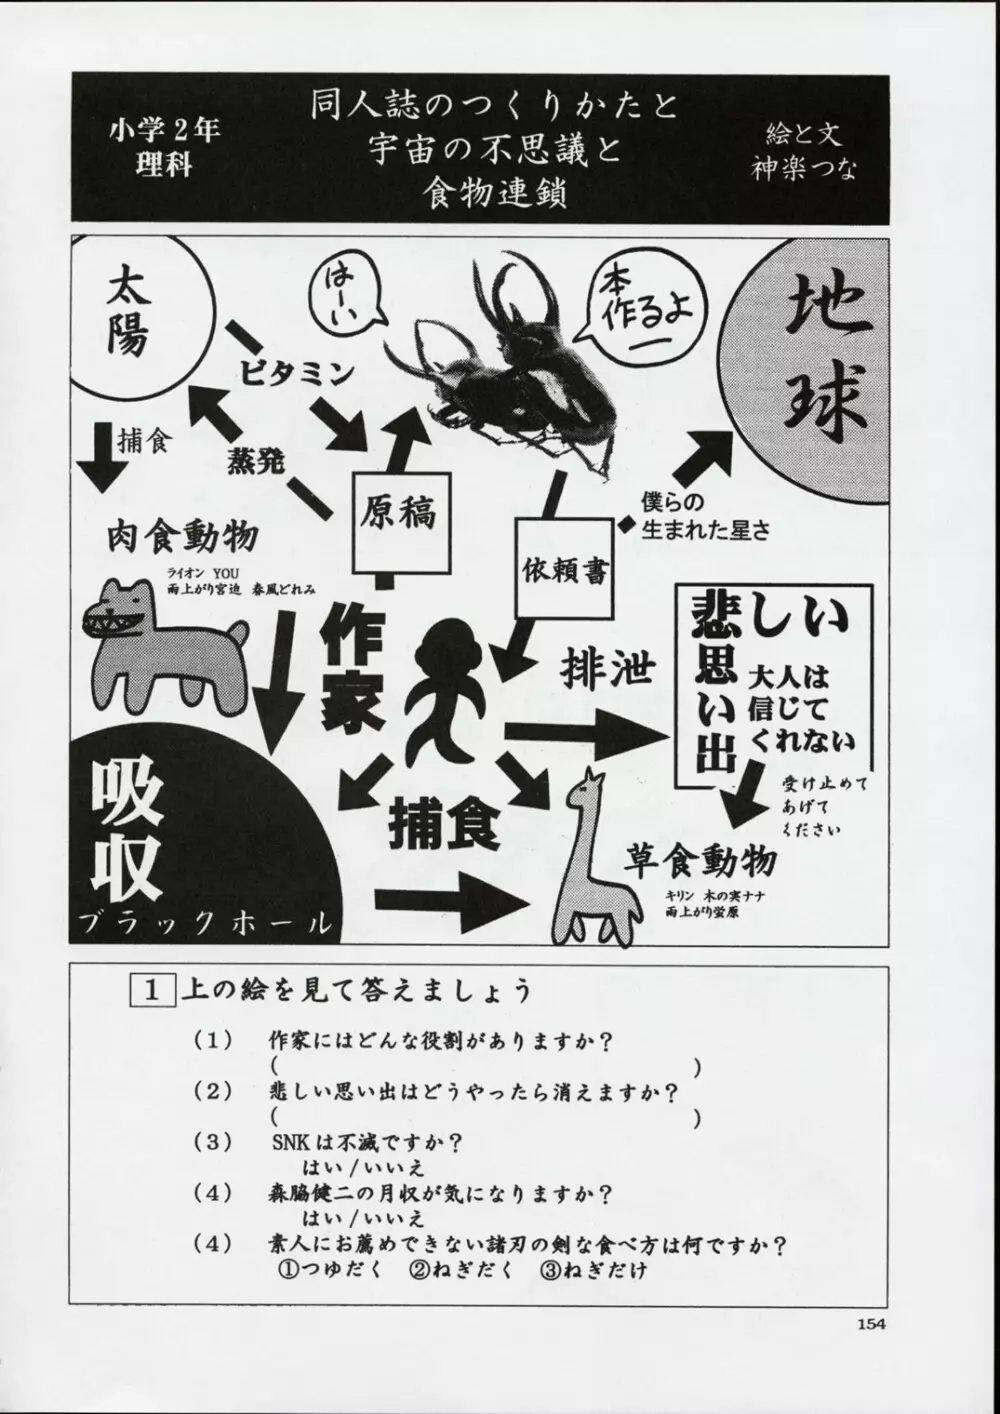 小学2年
理科
同人誌のつくりかたと
宇宙の不思議と
食物連鎖
絵と文
神楽つな
太陽
はーい
本作るよー
地球
ビタミン
捕食
蒸発
原稿
僕らの
生まれた星さ
肉食動物
ライオン YOU
雨上がり宮迫 春風どれみ
依頼書
作家
排泄
悲しい
思い出
大人は
信じて
くれない
受け止めて
あげて
ください
吸収
ブラックホール
捕食
草食動物
キリン 木の実ナナ
雨上がり蛍原
1 上の絵を見て答えましょう
(1) 作家にはどんな役割がありますか?
( )
(2) 悲しい思い出はどうやったら消えますか?
( )
(3) SNKは不滅ですか?
はい/いいえ
(4) 森脇健二の月収が気になりますか?
はい/いいえ
(4) 素人にお薦めできない諸刃の剣な食べ方は何ですか?
①つゆだく ②ねぎだく ③ねぎだけ
154